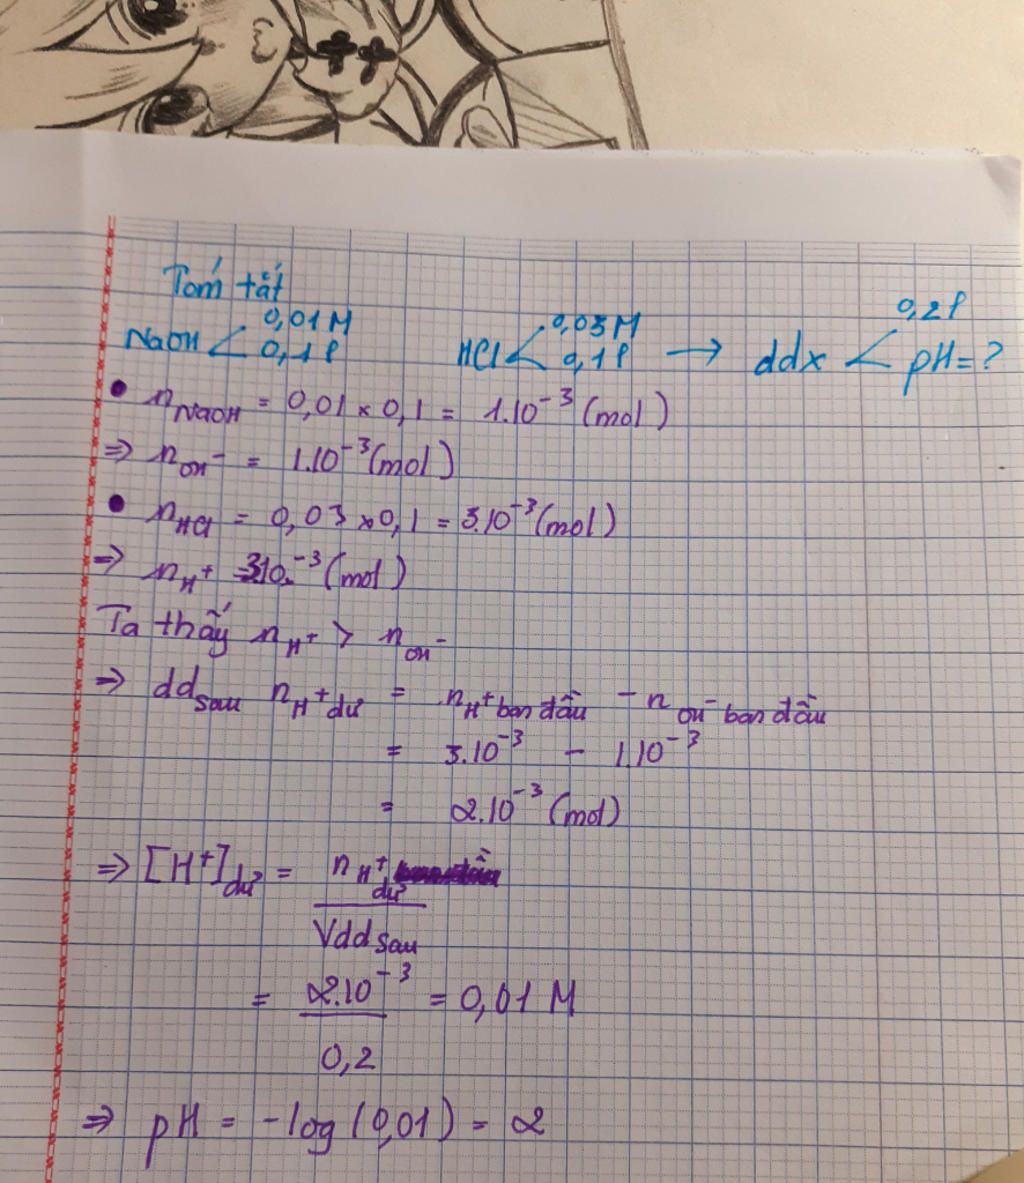 Tóm tắt
NaOH < 0,01M 0,1l HCl < 0,03M 0,1l → ddx < 0,2l pH=?
• nNaOH = 0,01 × 0,1 = 1.10⁻³ (mol)
⇒ nOH⁻ = 1.10⁻³ (mol)
• nHCl = 0,03 × 0,1 = 3.10⁻³ (mol)
⇒ nH⁺ = 310.⁻³ (mol)
Ta thấy nH⁺ > nOH⁻
⇒ dd sau nH⁺ dư = nH⁺ ban đầu - nOH⁻ ban đầu
= 3.10⁻³ - 1.10⁻³
= 2.10⁻³ (mol)
⇒ [H⁺]dư = nH⁺ dư
Vdd sau
= 2.10⁻³ = 0,01 M
0,2
⇒ pH = -log(0,01) = 2